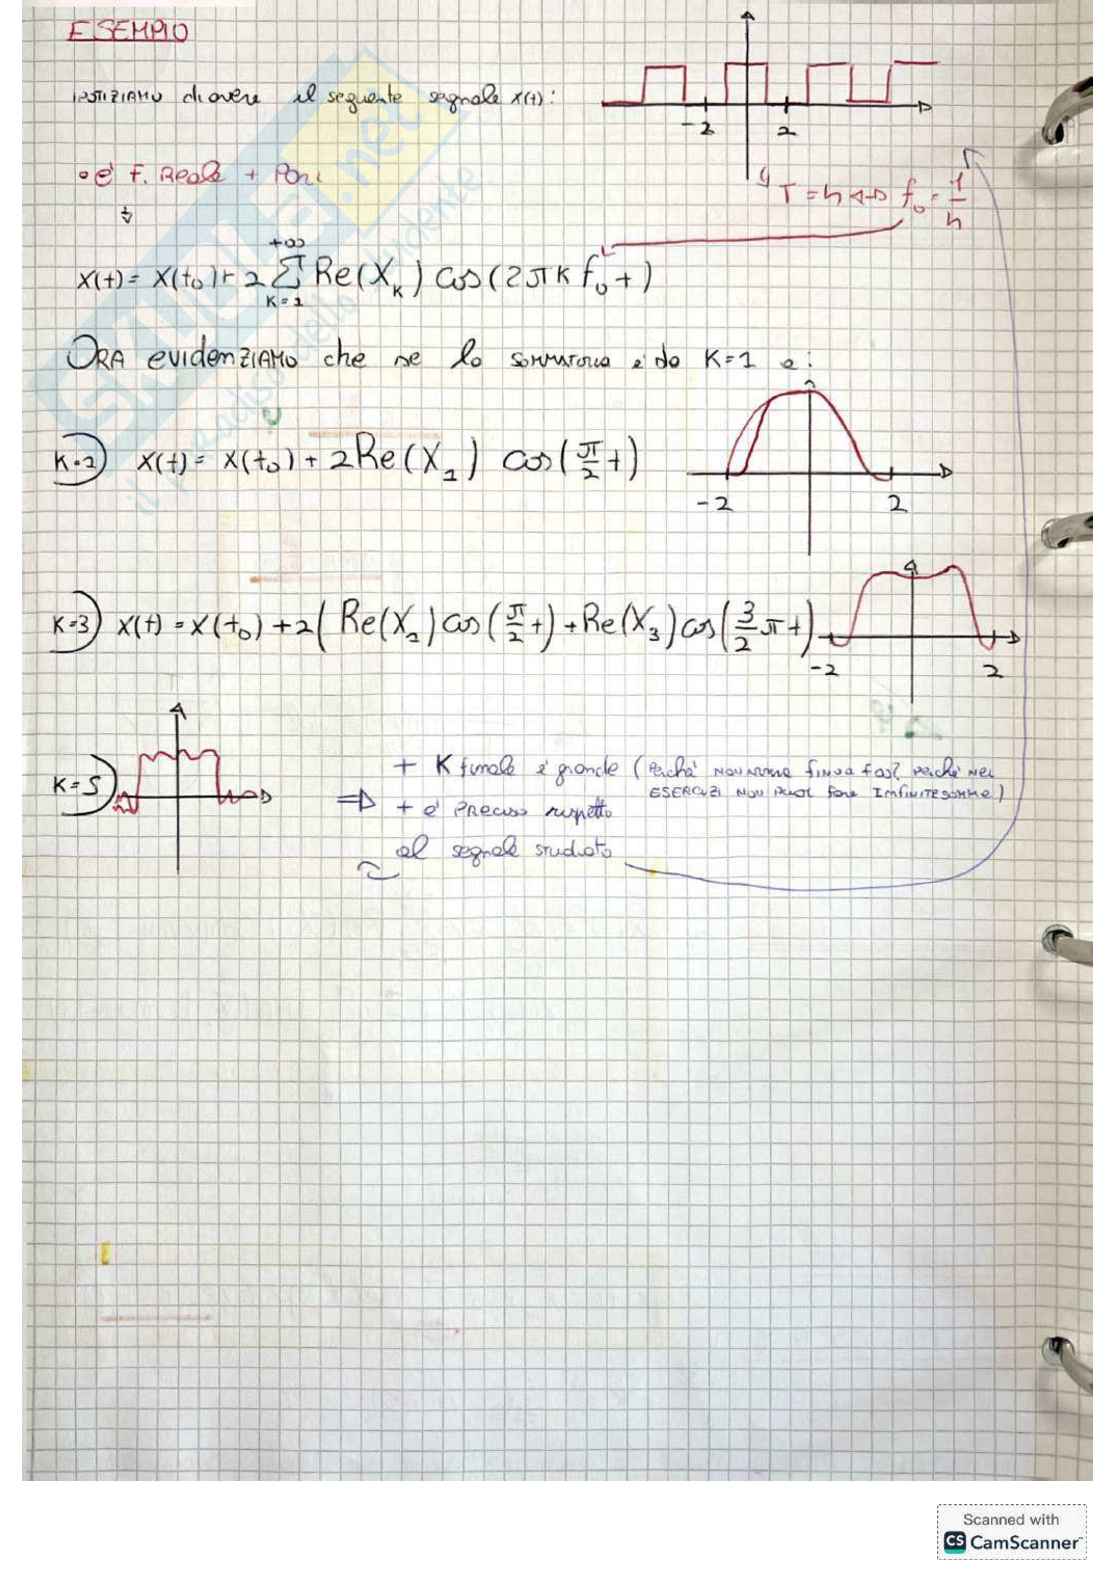 ESEMPIO
IPOTIZIAMO di avere il seguente segnale x(t):
-2 2
• è f. Reale + Pari
T = 4 ↔ f₀ = 1/4
x(t) = X(t₀) + 2 Σ Re(X_k) cos(2πk f₀ t)
+∞
K=1
ORA evidenZIAMO che se la sommatoria è da K=1 a:
K=1) x(t) = x(t₀) + 2Re(X₁) cos(π/2 t)
-2 2
K=3) x(t) = x(t₀) + 2(Re(X₁) cos(π/2 t) + Re(X₃) cos(3/2 π t)
-2 2
K=5)
+ K finale è grande (Perché non arriva fino a +∞? perché nei
ESERCIZI NON puoi fare Infinite somme)
⇒ + è PReciso rispetto
al segnale studiato
SKUOLA.net
il paradiso dello studente
Scanned with
CS CamScanner